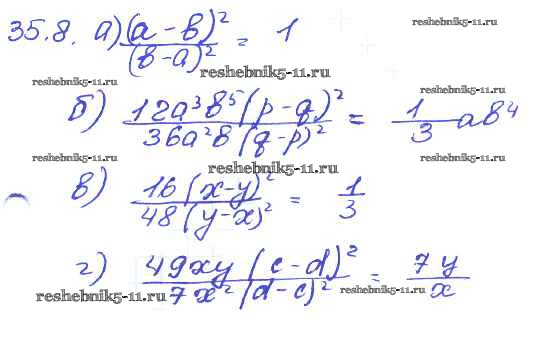 35.8. а) (a - b)² / (b - a)² = 1
reshebnik5-11.ru
reshebnik5-11.ru
reshebnik5-11.ru
reshebnik5-11.ru
б) 12a³b⁵(p - q)² / 36a²b(q - p)² = 1/3 ab⁴
reshebnik5-11.ru
reshebnik5-11.ru
reshebnik5-11.ru
в) 16(x-y)² / 48(y-x)² = 1/3
г) 49xy(c-d)² / 7x²(d-c)² = 7y/x
reshebnik5-11.ru
reshebnik5-11.ru